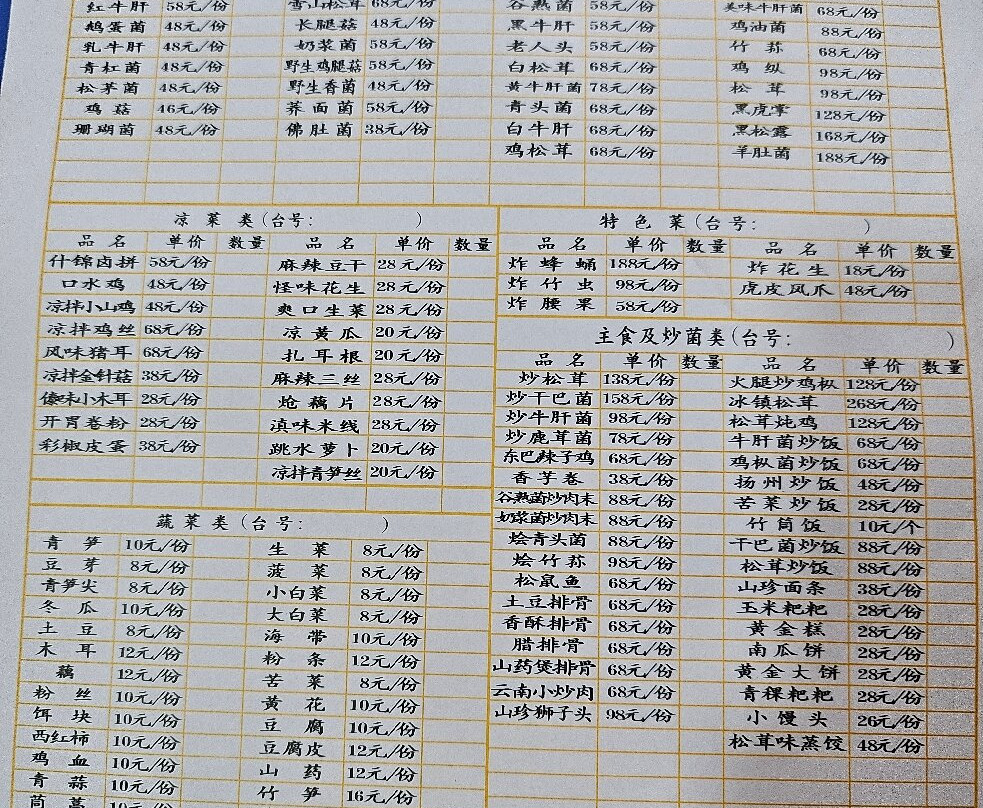 红牛肝 58元/份 雪山松茸 68元/份 谷熟菌 58元/份 美味牛肝菌 68元/份
鹅蛋菌 48元/份 长腿菇 48元/份 黑牛肝 58元/份 鸡油菌 88元/份
乳牛肝 48元/份 奶浆菌 58元/份 老人头 58元/份 竹荪 68元/份
青杠菌 48元/份 野生鸡腿菇 58元/份 白松茸 68元/份 鸡纵 98元/份
松茅菌 48元/份 野生香菌 48元/份 黄牛肝菌 78元/份 松茸 98元/份
鸡菇 46元/份 荞面菌 58元/份 青头菌 68元/份 黑虎掌 128元/份
珊瑚菌 48元/份 佛肚菌 38元/份 白牛肝 68元/份 黑松露 168元/份
鸡松茸 68元/份 羊肚菌 188元/份
凉菜类(台号: )
品名 单价 数量 品名 单价 数量
什锦卤拼 58元/份 麻辣豆干 28元/份
口水鸡 48元/份 怪味花生 28元/份
凉拌小山鸡 48元/份 爽口生菜 28元/份
凉拌鸡丝 68元/份 凉黄瓜 20元/份
风味猪耳 68元/份 扎耳根 20元/份
凉拌金针菇 38元/份 麻辣三丝 28元/份
傣味小木耳 28元/份 炝藕片 28元/份
开胃卷粉 28元/份 滇味米线 28元/份
彩椒皮蛋 38元/份 跳水萝卜 20元/份
凉拌青笋丝 20元/份
特色菜(台号: )
品名 单价 数量 品名 单价 数量
炸蜂蛹 188元/份 炸花生 18元/份
炸竹虫 98元/份 虎皮凤爪 48元/份
炸腰果 58元/份
主食及炒菌类(台号: )
品名 单价 数量 品名 单价 数量
炒松茸 138元/份 火腿炒鸡枞 128元/份
炒干巴菌 158元/份 冰镇松茸 268元/份
炒牛肝菌 98元/份 松茸炖鸡 128元/份
炒鹿茸菌 78元/份 牛肝菌炒饭 68元/份
东巴辣子鸡 68元/份 鸡枞菌炒饭 68元/份
香芋卷 38元/份 扬州炒饭 48元/份
谷熟菌炒肉末 88元/份 苦菜炒饭 28元/份
奶浆菌炒肉末 88元/份 竹筒饭 10元/个
烩青头菌 88元/份 干巴菌炒饭 88元/份
烩竹荪 98元/份 松茸炒饭 88元/份
松鼠鱼 68元/份 山珍面条 38元/份
土豆排骨 68元/份 玉米粑粑 28元/份
香酥排骨 68元/份 黄金糕 28元/份
腊排骨 68元/份 南瓜饼 28元/份
山药煲排骨 68元/份 黄金大饼 28元/份
云南小炒肉 68元/份 青稞粑粑 28元/份
山珍狮子头 98元/份 小馒头 26元/份
松茸味蒸饺 48元/份
蔬菜类(台号: )
青笋 10元/份 生菜 8元/份
豆芽 8元/份 菠菜 8元/份
青笋尖 8元/份 小白菜 8元/份
冬瓜 10元/份 大白菜 8元/份
土豆 8元/份 海带 10元/份
木耳 12元/份 粉条 12元/份
藕 12元/份 苦菜 8元/份
粉丝 10元/份 黄花 10元/份
饵块 10元/份 豆腐 10元/份
西红柿 10元/份 豆腐皮 12元/份
鸡血 10元/份 山药 12元/份
青蒜 10元/份 竹笋 16元/份
茼蒿 10元/份